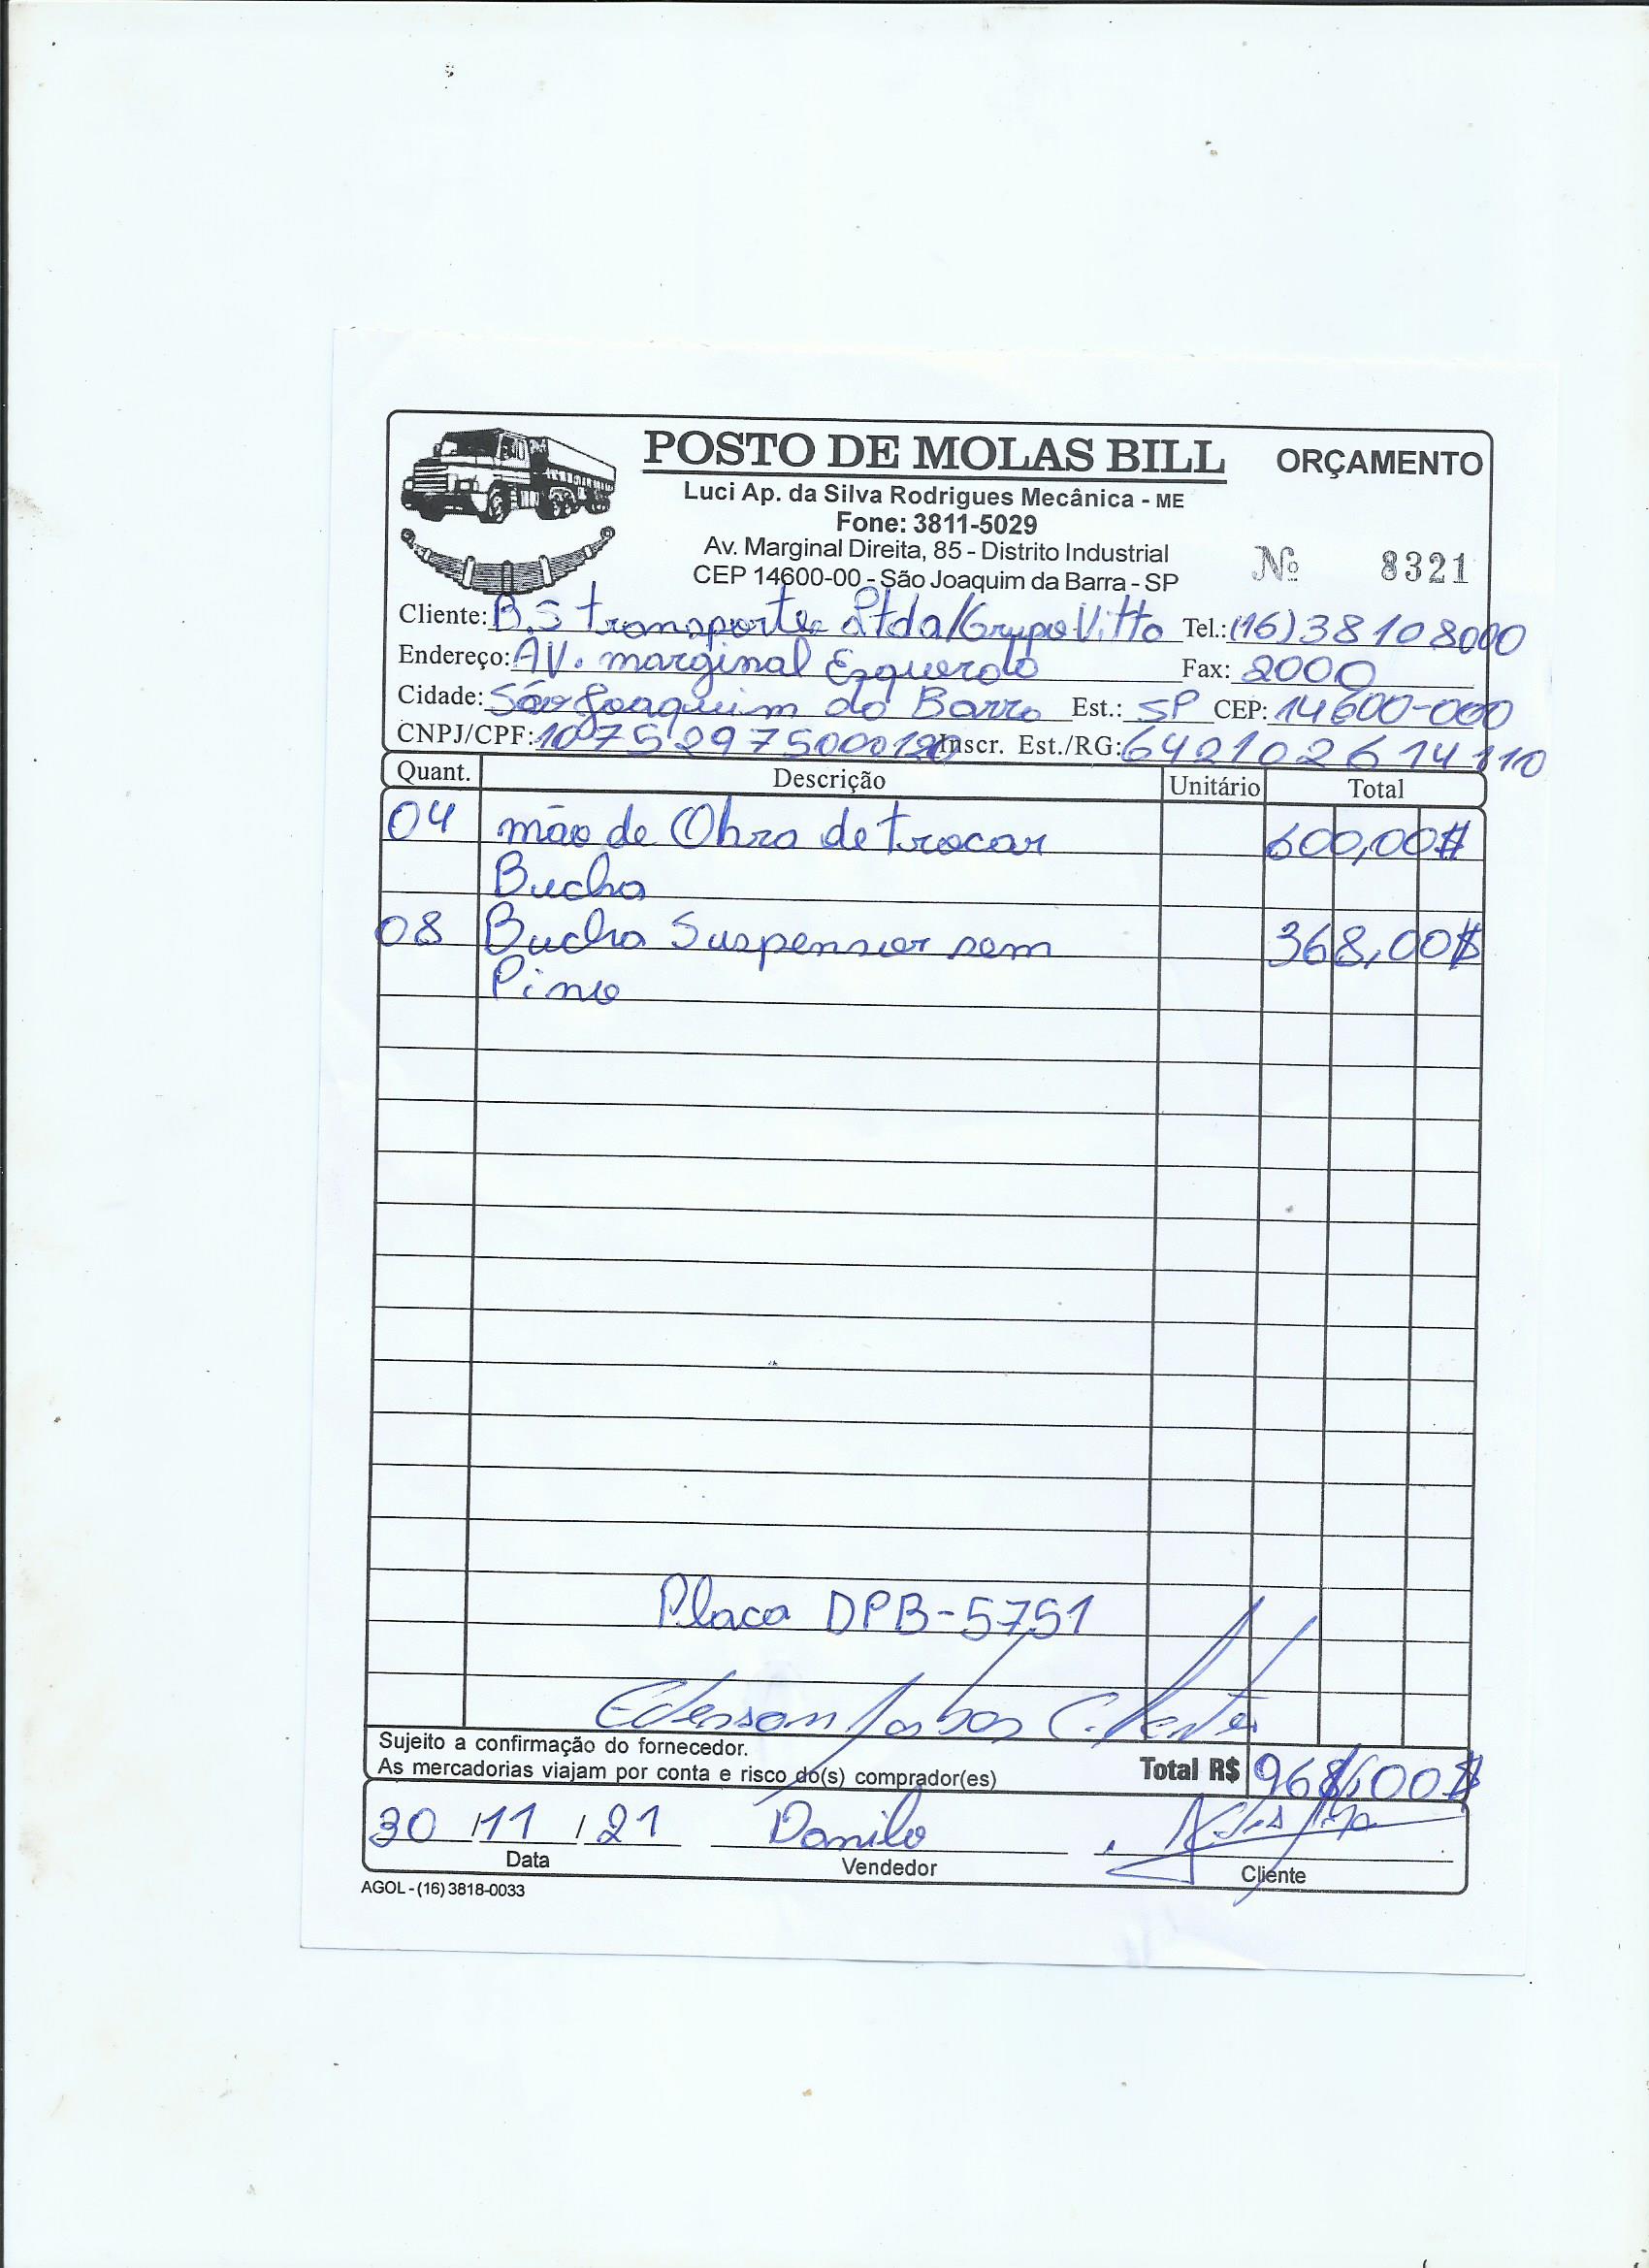 POSTO DE MOLAS BILL ORÇAMENTO
Luci Ap. da Silva Rodrigues Mecânica - ME
Fone: 3811-5029
Av. Marginal Direita, 85 - Distrito Industrial
CEP 14600-00 - São Joaquim da Barra - SP
Nº 8321
Cliente: B.S transportes Ltda/Grupo Vitta Tel.: (16) 38108000
Endereço: AV. marginal Esquerda Fax: 2000
Cidade: São Joaquim da Barra Est.: SP CEP: 14600-000
CNPJ/CPF: 10752975000120 Inscr. Est./RG: 642102614110
Quant. Descrição Unitário Total
04 mão de Obra de trocar 600,00
Bucha
08 Bucha Suspensor sem 368,00
Pino
Placa DPB-5751
Ederson
Sujeito a confirmação do fornecedor.
As mercadorias viajam por conta e risco do(s) comprador(es) Total R$ 968,00
30 / 11 / 21 Danilo
Data Vendedor Cliente
AGOL - (16) 3818-0033